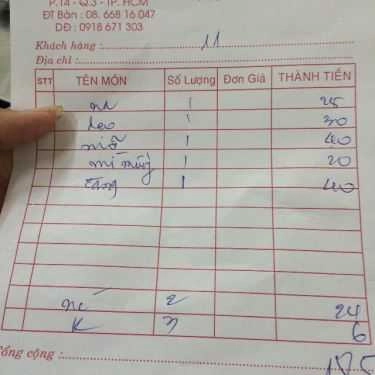 P.14 - Q.3 - TP. HCM
ĐT Bàn : 08. 668 16 047
DĐ : 0918 671 303
Khách hàng : 11
Địa chỉ :
STT TÊN MÓN Số Lượng Đơn Giá THÀNH TIỀN
1 25
1 30
1 40
1 20
1 40
nc 2 24
K 3 6
Tổng cộng : 185